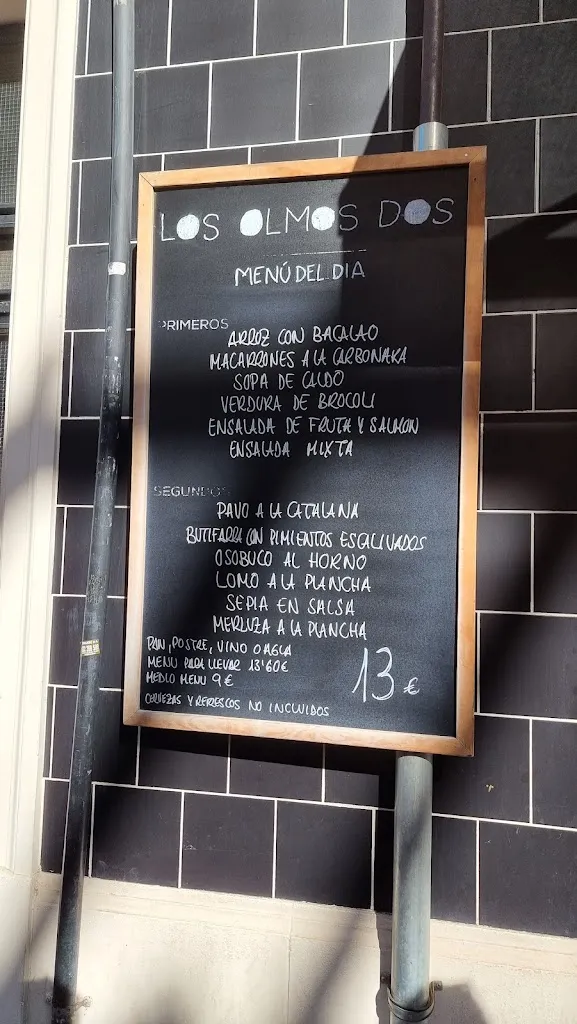 LOS OLMOS DOS
MENÚ DEL DIA
PRIMEROS
ARROZ CON BACALAO
MACARRONES A LA CARBONARA
SOPA DE CALDO
VERDURA DE BROCOLI
ENSALADA DE FRUTA Y SALMON
ENSALADA MIXTA
SEGUNDOS
PAVO A LA CATALANA
BUTIFARRA CON PIMIENTOS ESCALIVADOS
OSOBUCO AL HORNO
LOMO A LA PLANCHA
SEPIA EN SALSA
MERLUZA A LA PLANCHA
PAN, POSTRE, VINO O AGUA
MENU PARA LLEVAR 13'60€
MEDIO MENU 9€
13 €
CERVEZAS Y REFRESCOS NO INCLUIDOS